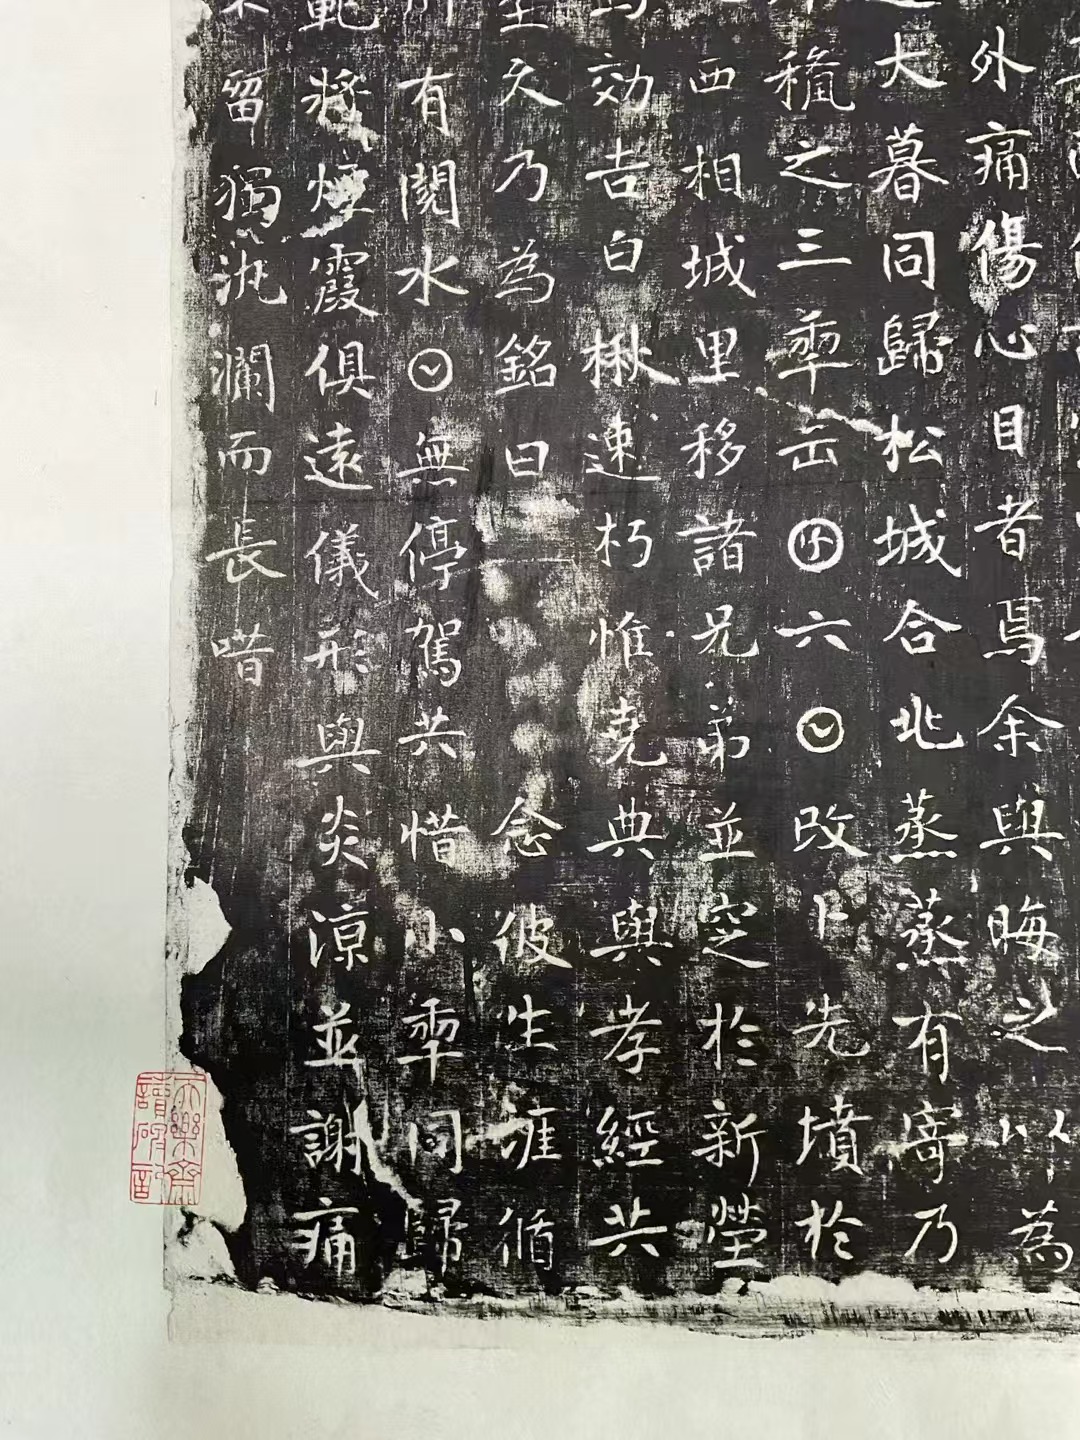 外痛傷心目者焉余與晦之以為
大暮同歸松城合兆蒸蒸有寄乃
穐之三𠡦𠙺囝六𡆠改卜先墳於
西相城里移諸兄弟並窆於新塋
効吉白楸速朽惟堯典與孝經共
乃為銘曰 念彼生涯循
有閱水𡆠無停駕共惜小𠡦同歸
範將煙霞俱遠儀形與炎涼並謝痛
留獨汍瀾而長唶
六樂齋